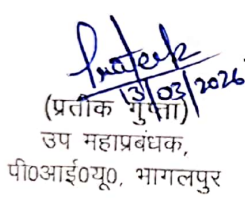 Prateek
13/03/2026
(प्रतीक गुप्ता)
उप महाप्रबंधक,
पी०आई०यू०, भागलपुर